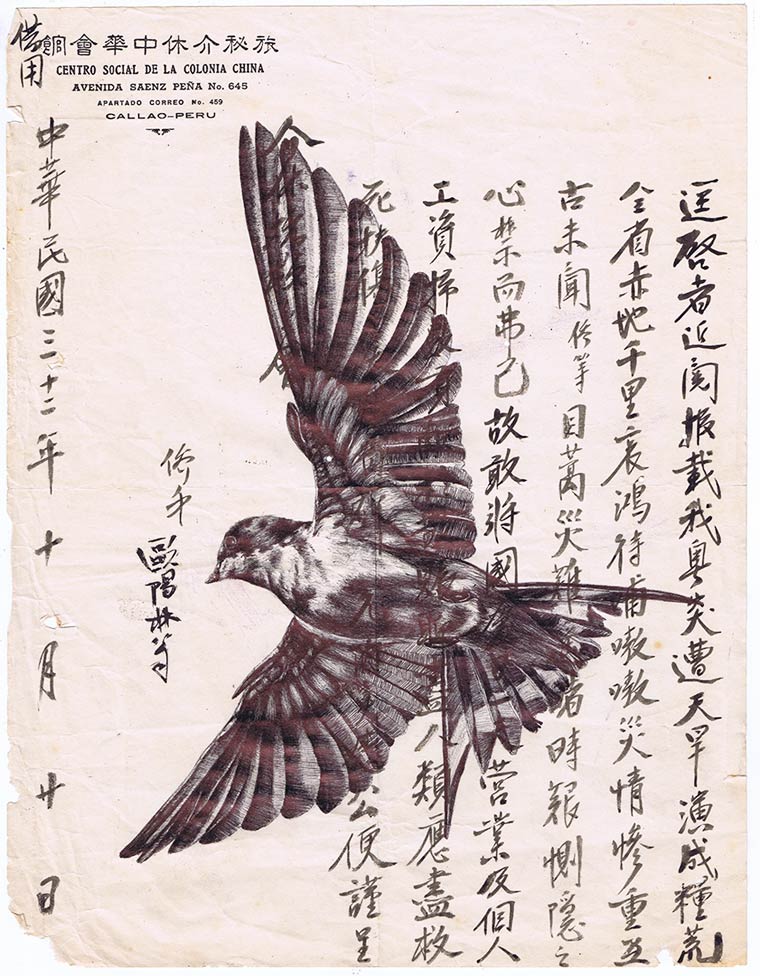 旅秘介休中華會館
CENTRO SOCIAL DE LA COLONIA CHINA
AVENIDA SAENZ PEÑA No. 645
APARTADO CORREO No. 459
CALLAO-PERU
借用
逕啓者近閱報載我粵災遭天旱演成糧荒
全省赤地千里哀鴻待哺嗷嗷災情慘重亙
古未聞僑等目蒿災難 者時艱惻隱之
心禁而弗已故敢將國 營業及個人
工資掃 人類應盡救
死扶傷 公便謹呈
介 會
僑 歐陽林等
中華民國三十二年十月廿日